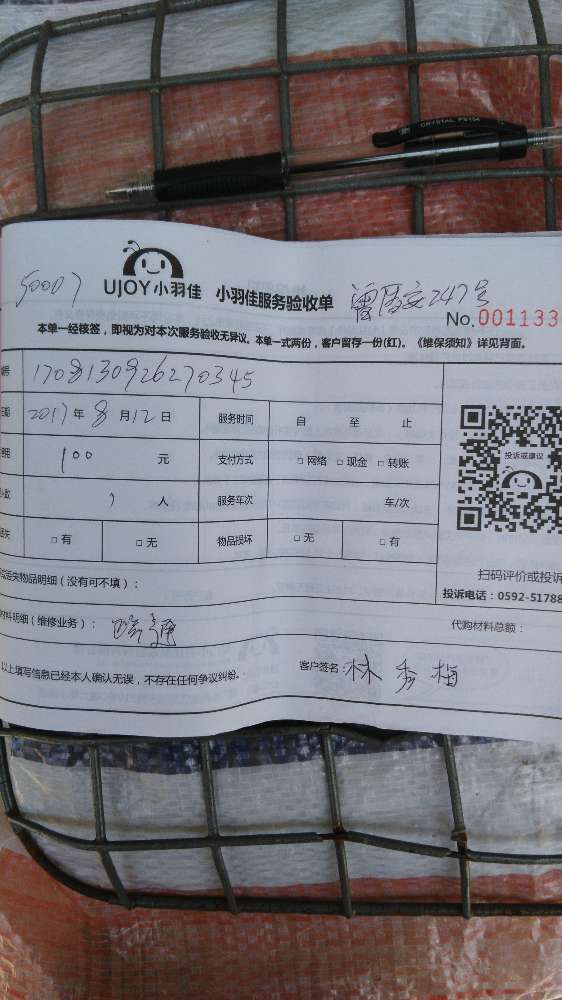 CRYSTAL P2104
50007
UJOY小羽佳 小羽佳服务验收单
曾厝安247号
No.001133
本单一经核签，即视为对本次服务验收无异议。本单一式两份，客户留存一份(红)。《维保须知》详见背面。
号 1708130926270345
日期 2017年8月12日 服务时间 自 至 止
100 元 支付方式 □网络 □现金 □转账
人数 1 人 服务车次 车/次
□有 □无 物品损坏 □无 □有
投诉或建议
扫码评价或投诉
投诉电话：0592-51788
丢失物品明细（没有可不填）：
材料明细（维修业务）： 疏通
代购材料总额：
以上填写信息已经本人确认无误，不存在任何争议纠纷。
客户签名：林秀梅